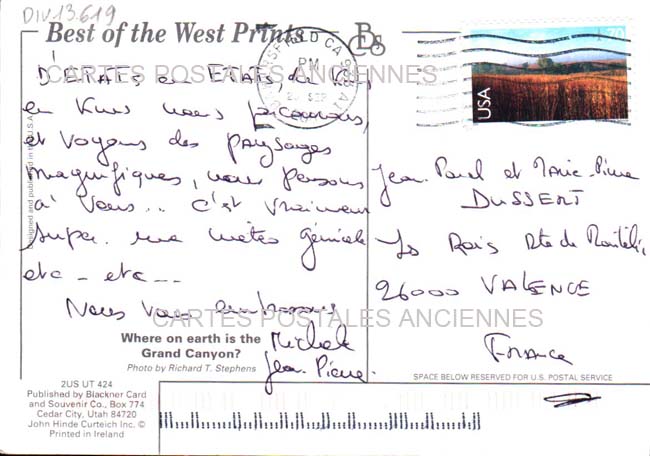 DIV.13.619
Best of the West Prints
BAKERSFIELD CA
PM
SEP
USA
70
CARTES POSTALES ANCIENNES
D'ETATS en ETATS de
en Kms nous parcourons,
et voyons des paysages
magnifiques, nous pensons
à Vous... c'est vraiment
super. une météo géniale
etc - etc...
Nous vous embrassons
Michele
Jean. Pierre.
Jean-Paul et Marie-Pierre
DUSSERT
Rte de
26000 VALENCE
FRANCE
CARTES POSTALES ANCIENNES
Where on earth is the
Grand Canyon?
Photo by Richard T. Stephens
SPACE BELOW RESERVED FOR U.S. POSTAL SERVICE
2US UT 424
Published by Blackner Card
and Souvenir Co., Box 774
Cedar City, Utah 84720
John Hinde Curteich Inc. ©
Printed in Ireland
Designed and published in the U.S.A.